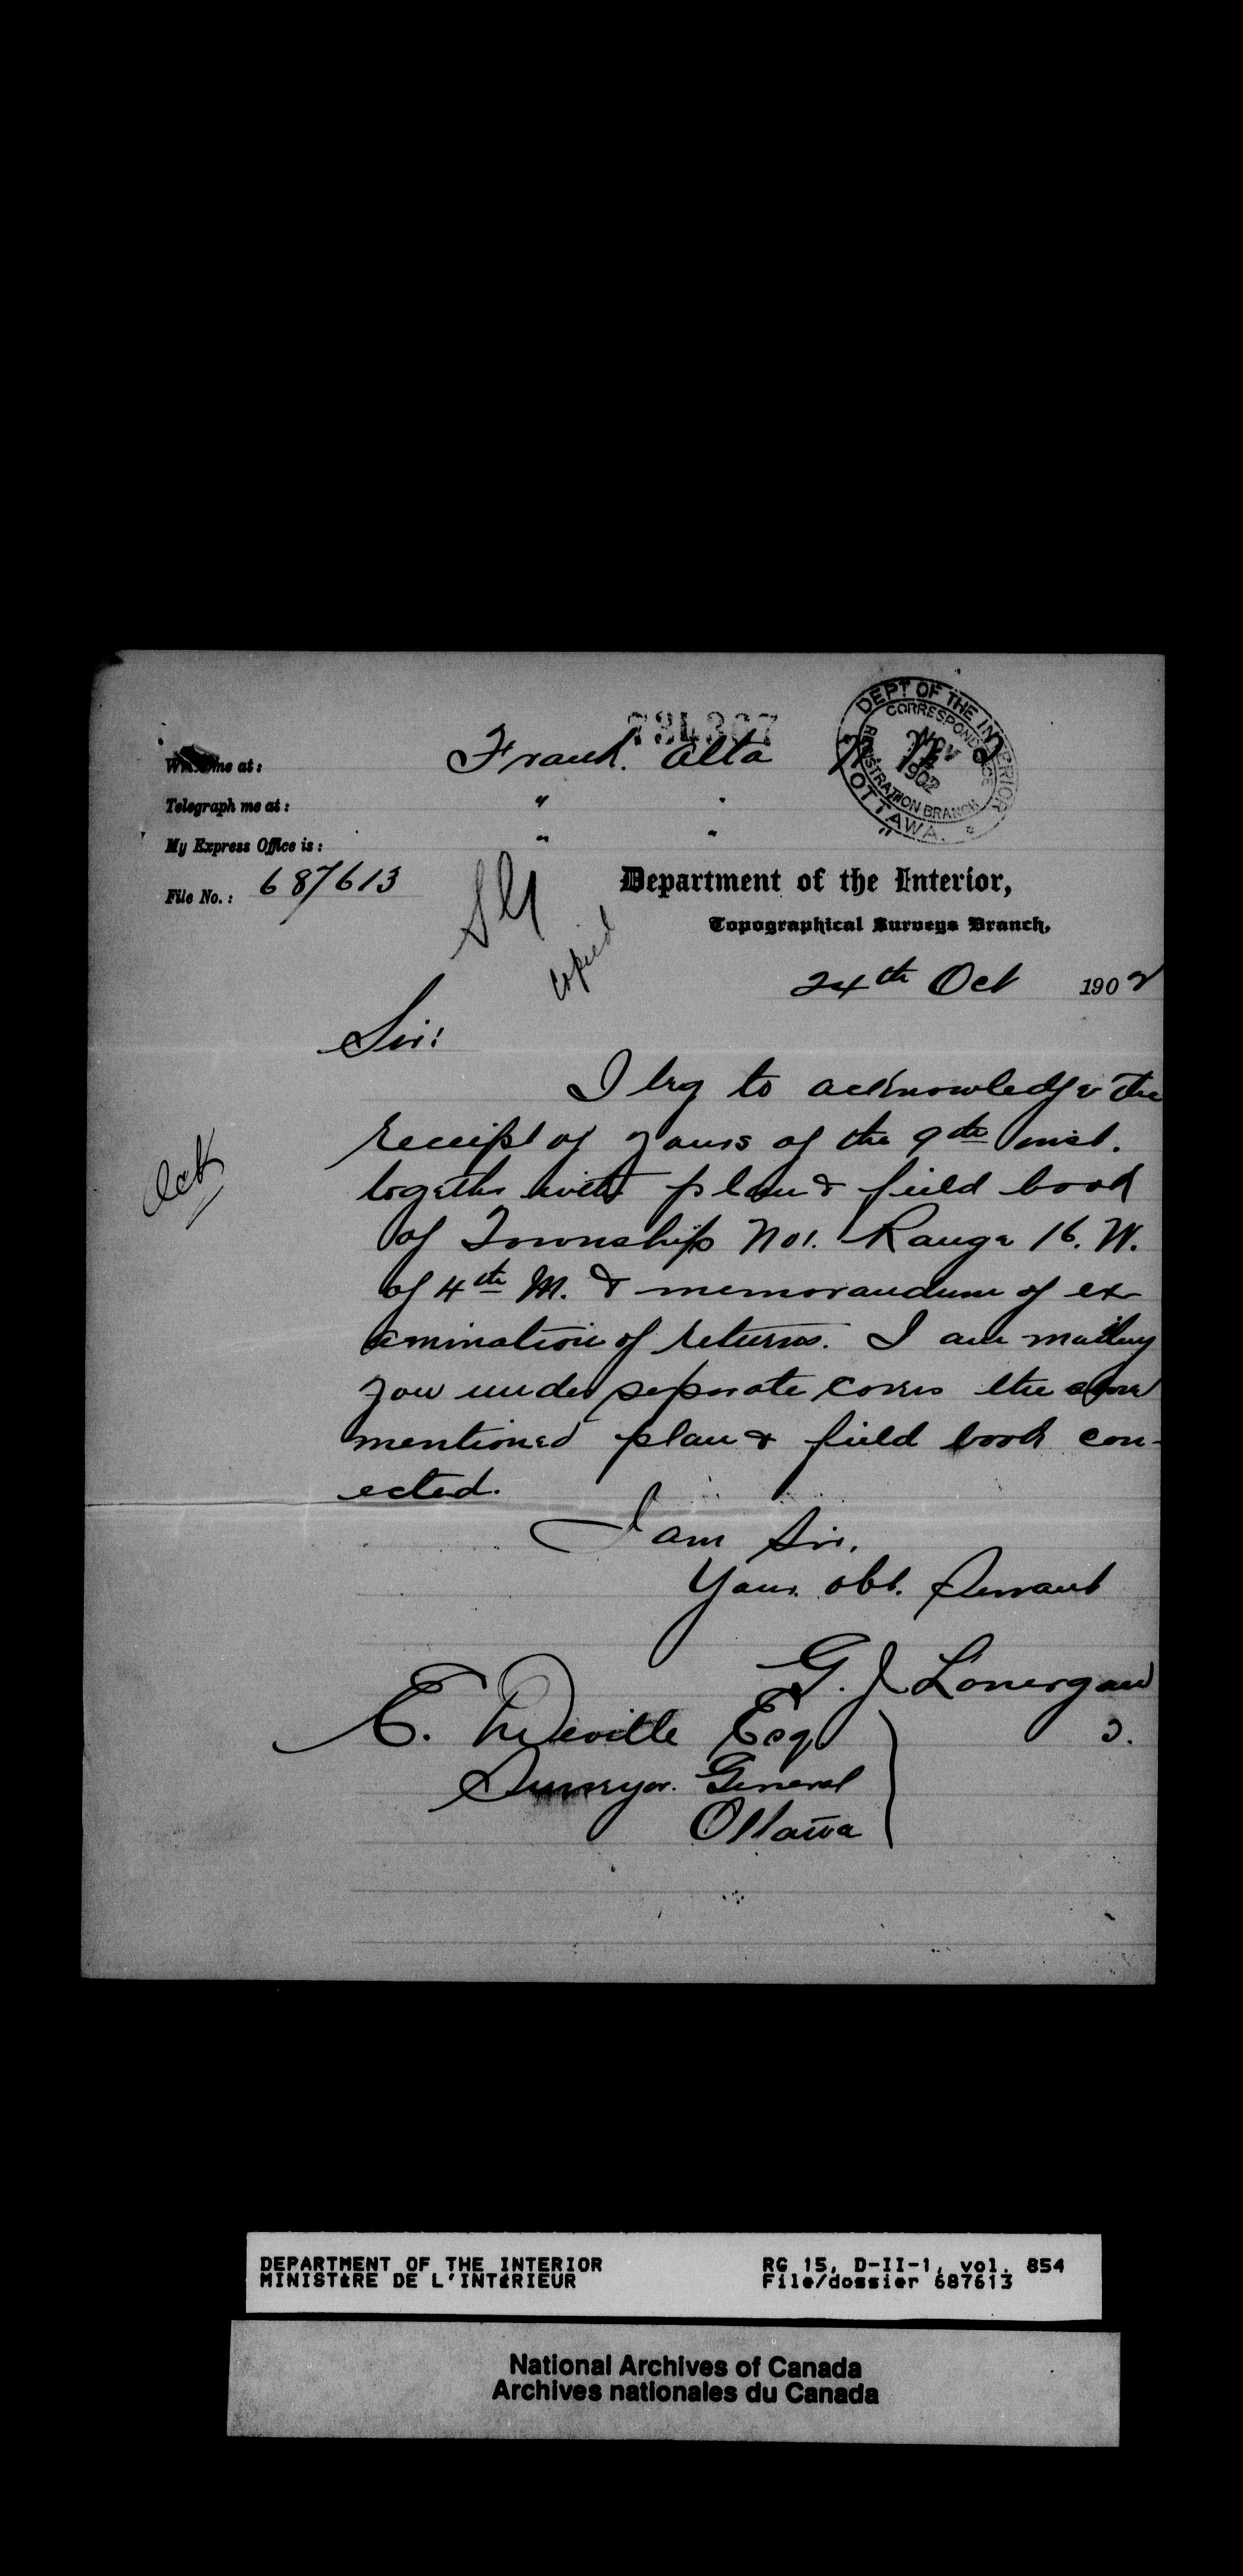 734367
DEPT OF THE INTERIOR
CORRESPONDENCE
NOV
1902
REGISTRATION BRANCH
OTTAWA.
me at: Frank. Alta
Telegraph me at: " "
My Express Office is: " " "
File No.: 687613
Department of the Interior,
Topographical Surveys Branch,
copied
24th Oct 1902
Sir:
I beg to acknowledge the
receipt of yours of the 9th inst.
together with plan & field book
of Township No 1. Range 16. W.
of 4th M. & memorandum of ex-
amination of returns. I am mailing
you under separate cover the above
mentioned plan & field book corr-
ected.
Ack
I am Sir,
Your obt. Servant
G. J. Lonergan
E. Deville Esq
Surveyor General
Ottawa
DEPARTMENT OF THE INTERIOR
MINISTÈRE DE L'INTÉRIEUR
RG 15, D-II-1, vol. 854
File/dossier 687613
National Archives of Canada
Archives nationales du Canada